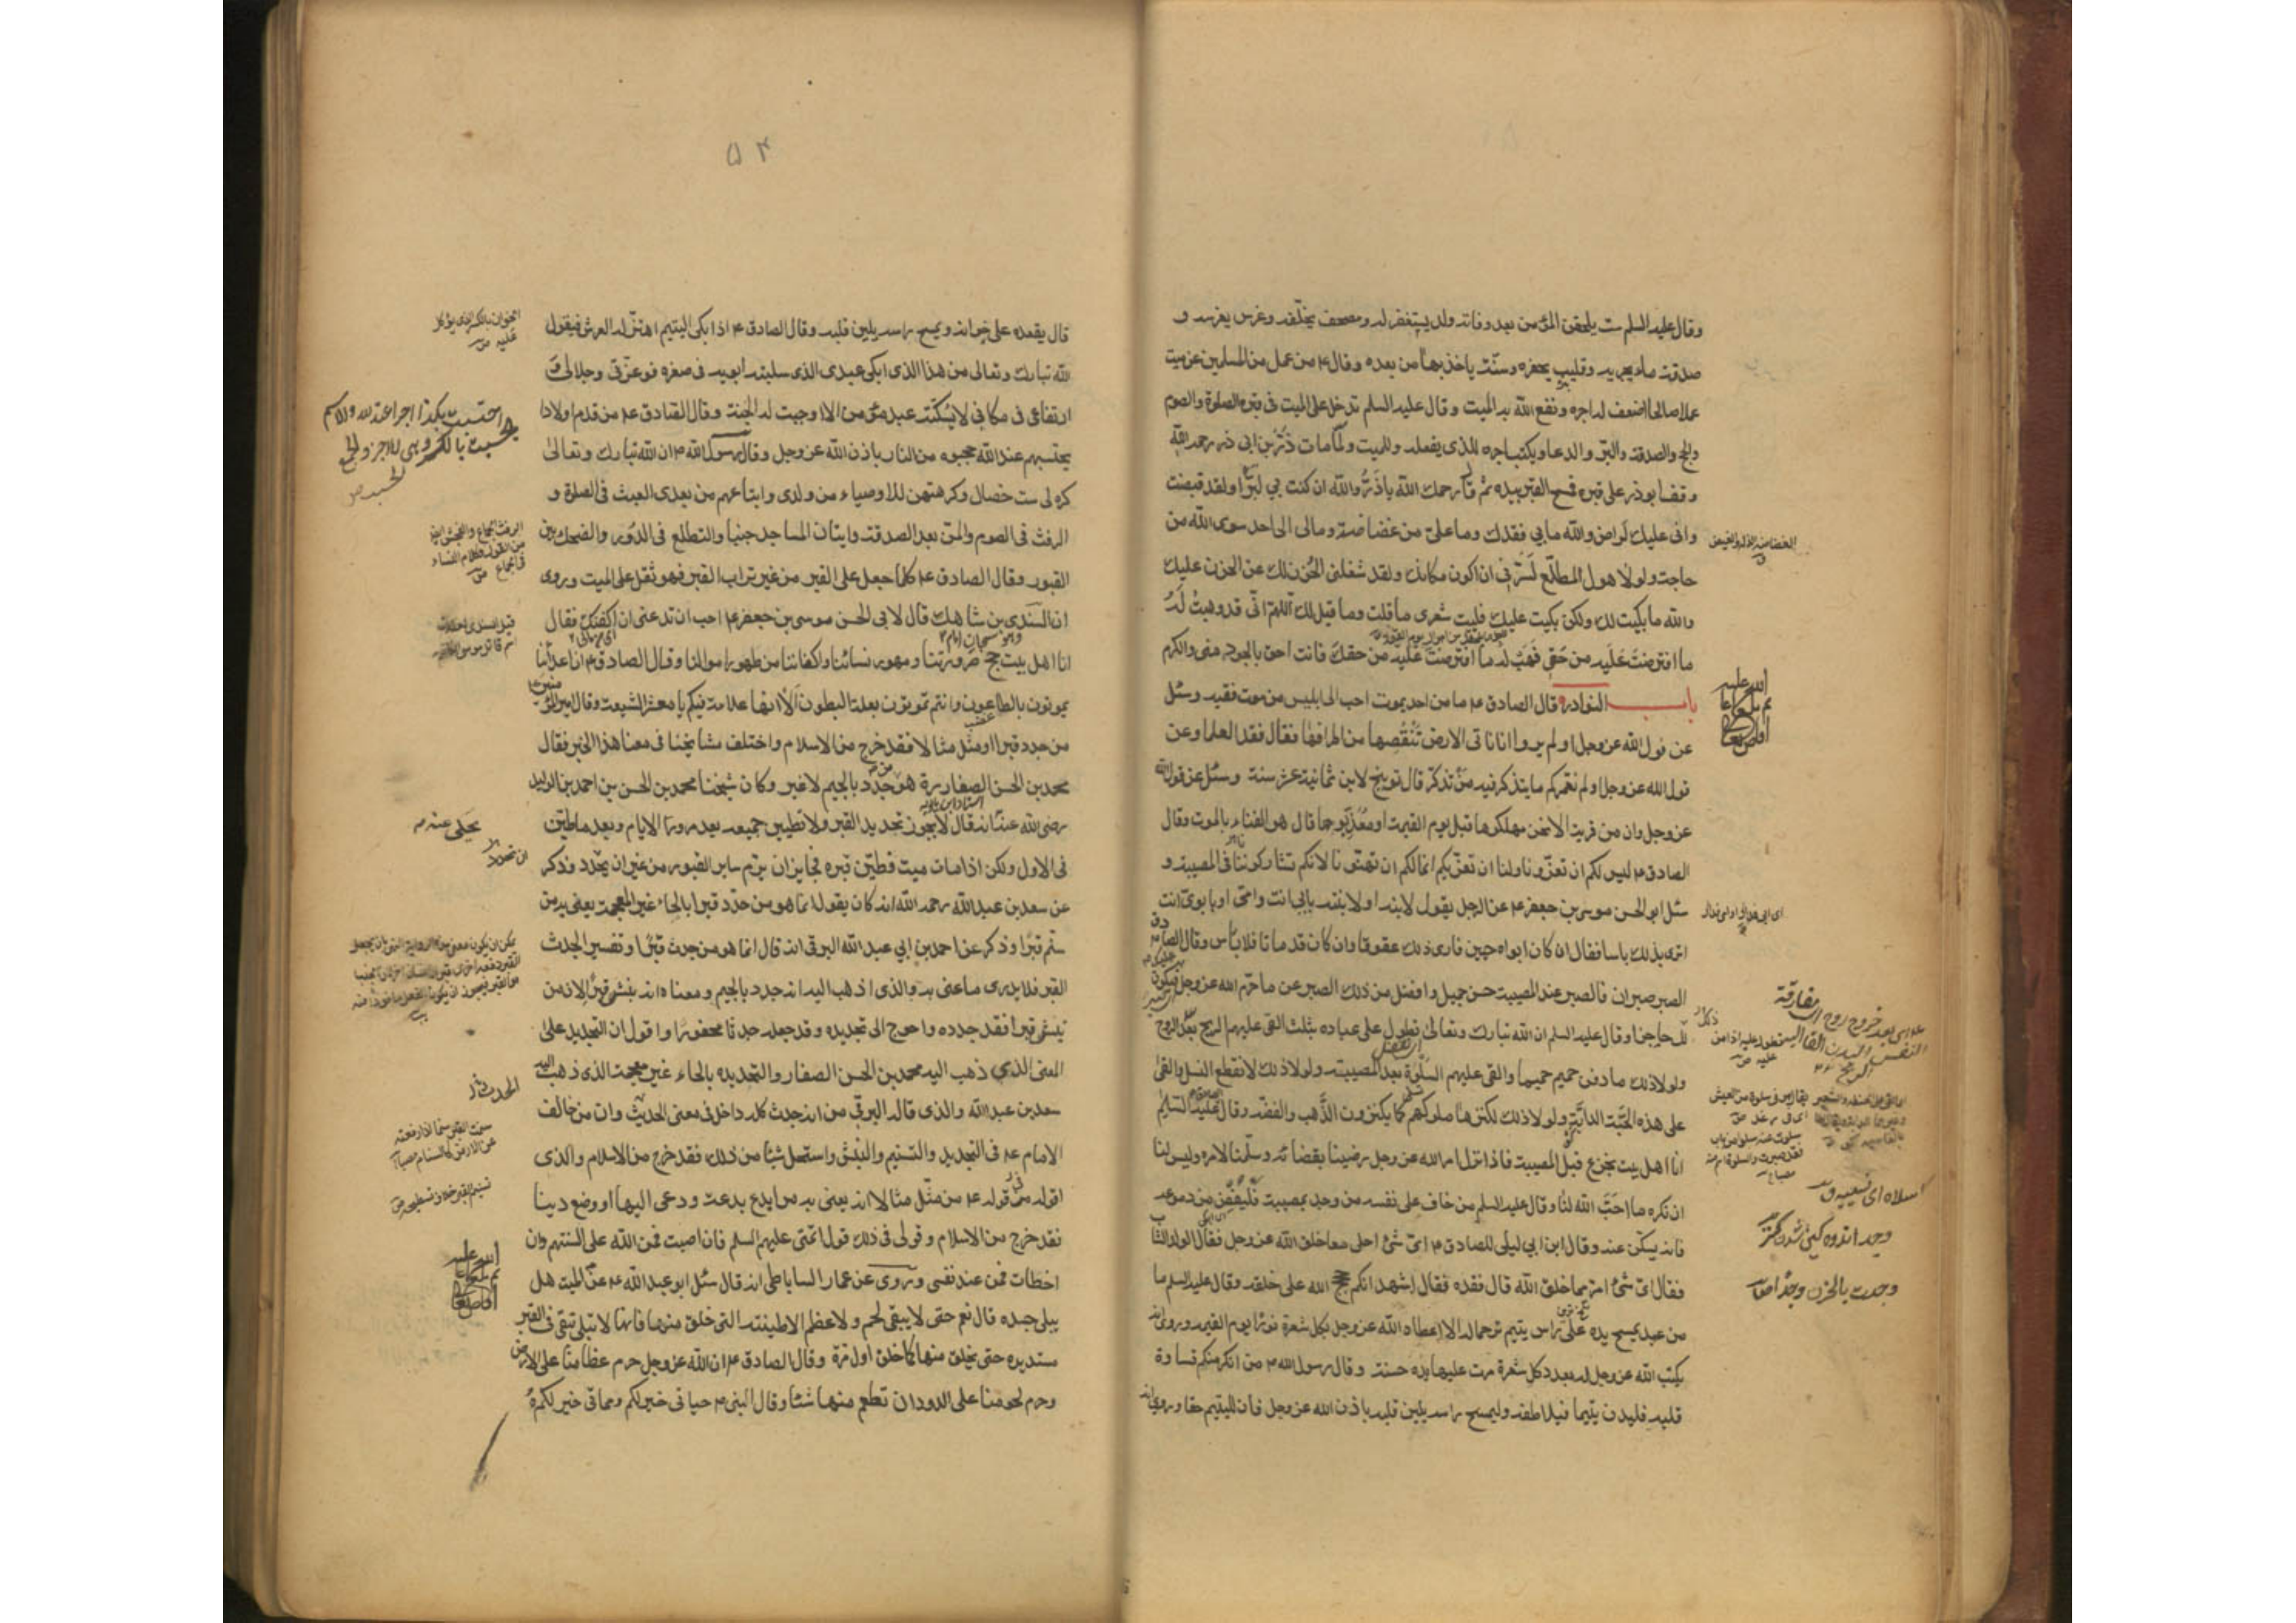 وقال عليه السلم ست يلحقن المؤمن بعد وفاته ولد يستغفر له ومصحف يخلفه وغرس يغرسه و
صدقة ماء يجريه وقليب يحفره وسنة ياخذ بها من بعده وقال ع من عمل من المسلمين عن ميت
عملا صالحا اضعف له اجره ونفع الله به الميت وقال عليه السلم تدخل على الميت فى قبره الصلوة والصوم
والحج والصدقة والبر والدعا ويكتب اجره للذى يفعله وللميت ولما مات ذر بن ابى ذر رحمه الله
وقف ابو ذر على قبره فمسح القبر بيده ثم قال رحمك الله يا ذر والله ان كنت بي لبرا ولقد قبضت
وانى عليك لراض والله مابي فقدك وما على من غضاضة ومالى الى احد سوى الله من
حاجة ولولا هول المطلع لسرنى ان اكون مكانك ولقد شغلنى الحزن لك عن الحزن عليك
والله ما بكيت لك ولكن بكيت عليك فليت شعرى ما قلت وما قيل لك اللهم انى قد وهبت له
ما افترضت عليه من حقى فهب له ما افترضت عليه من حقك فانت احق بالجود منى والكرم
باب النوادر قال الصادق ع ما من احد يموت احب الى ابليس من موت فقيه وسئل
عن قول الله عز وجل اولم يروا انا ناتى الارض ننقصها من اطرافها فقال فقد العلما وعن
قول الله عز وجل اولم نعمركم ما يتذكر فيه من تذكر قال توبيخ لابن ثمانية عشر سنة وسئل عن قول الله
عز وجل وان من قرية الا نحن مهلكوها قبل يوم القيمة او معذبوها قال هو الفناء بالموت وقال
الصادق ع ليس لكم ان تعزونا ولنا ان نعزيكم انما لكم ان تهنونا لانكم تشاركوننا فى المصيبة و
سئل ابو الحسن موسى بن جعفر ع عن الرجل يقول لابنه او لابنته بابي انت وامى او بابوى انت
اترى بذلك باسا فقال ان كان ابواه حيين فارى ذلك عقوقا وان كان قد ماتا فلا باس وقال الصادق ع
الصبر صبران فالصبر عند المصيبة حسن جميل وافضل من ذلك الصبر عن ما حرم الله عز وجل عليك فيكون
لك حاجزا وقال عليه السلم ان الله تبارك وتعالى تطول على عباده بثلث القى عليهم الريح بعد الروح
ولولا ذلك ما دفن حميم حميما والقى عليهم السلوة بعد المصيبة ولولا ذلك لانقطع النسل والقى
على هذه الحبة الدابة ولولا ذلك لكنزها ملوكهم كما يكنزون الذهب والفضة وقال عليه السلم
انا اهل بيت نجزع قبل المصيبة فاذا نزل امر الله عز وجل رضينا بقضائه وسلمنا لامره وليس لنا
ان نكره ما احب الله لنا وقال عليه السلم من خاف على نفسه من وجد بمصيبة فليفض من دموعه
فانه يسكن عنه وقال ابن ابي ليلى للصادق ع اى شئ احلى مما خلق الله عز وجل فقال الولد الشاب
فقال اى شئ امر مما خلق الله قال فقده فقال اشهد انكم حجج الله على خلقه وقال عليه السلم ما
من عبد يمسح يده على راس يتيم ترحما له الا اعطاه الله عز وجل بكل شعرة نورا يوم القيمة وروى انه
يكتب الله عز وجل له بعدد كل شعرة مرت عليها يده حسنة وقال رسول الله ص من انكر منكم قساوة
قلبه فليدن يتيما فيلاطفه وليمسح راسه يلين قلبه باذن الله عز وجل فان لليتيم حقا وروى انه
اسلاه اى
وجد اندوه كين شدن
وجدت بالحزن وجدا
٥٤
قال يقعده على خوانه ويمسح راسه يلين قلبه وقال الصادق ع اذا بكى اليتيم اهتز له العرش فيقول
الله تبارك وتعالى من هذا الذى ابكى عبدى الذى سلبته ابويه فى صغره فوعزتى وجلالى و
ارتفاعى فى مكانى لا يسكته عبد مؤمن الا اوجبت له الجنة وقال الصادق ع من قدم اولادا
يحتسبهم عند الله حجبوه من النار باذن الله عز وجل وقال رسول الله ص ان الله تبارك وتعالى
كره لى ست خصال وكرهتهن للاوصياء من ولدى واتباعهم من بعدى العبث فى الصلوة و
الرفث فى الصوم والمن بعد الصدقة واتيان المساجد جنبا والتطلع فى الدور والضحك بين
القبور وقال الصادق ع كلما جعل على القبر من غير تراب القبر فهو ثقل على الميت وروى
ان السندى بن شاهك قال لابى الحسن موسى بن جعفر ع احب ان تدعنى ان اكفنك فقال
انا اهل بيت حج صرورتنا ومهور نسائنا واكفاننا من طهور اموالنا وقال الصادق ع ان اعدائنا
يموتون بالطاعون وانتم تموتون بعلة البطون الا انها علامة فيكم يا معشر الشيعة وقال امير المؤمنين ع
من جدد قبرا او مثل مثالا فقد خرج من الاسلام واختلف مشايخنا فى معنا هذا الخبر فقال
محمد بن الحسن الصفار ره هو جدد بالجيم لا غير وكان شيخنا محمد بن الحسن بن احمد بن الوليد
رضى الله عنه انه قال لا يجوز تجديد القبر ولا تطيين جميعه بعد مرور الايام وبعد ما طين
فى الاول ولكن اذا مات ميت فطين قبره فجايز ان يرم ساير القبور من غير ان يجدد وذكر
عن سعد بن عبد الله رحمه الله انه كان يقول انما هو من حدد قبرا بالحاء غير المعجمة يعنى به من
سنم قبرا وذكر عن احمد بن ابي عبد الله البرقى انه قال انما هو من جدث قبرا وتفسير الجدث
القبر فلا يدرى ما عنى به والذى اذهب اليه انه جدد بالجيم ومعناه انه نبش قبرا لان من
نبش قبرا فقد جدده واحوج الى تجديده وقد جعله جدثا محفورا واقول ان التجديد على
المعنى الذي ذهب اليه محمد بن الحسن الصفار والتحديد بالحاء غير معجمة الذى ذهب اليه
سعد بن عبد الله والذى قاله البرقى من انه جدث كله داخل فى معنى الحديث وان من خالف
الامام ع فى التجديد والتسنيم والنبش واستحل شيئا من ذلك فقد خرج من الاسلام والذى
اقوله فى قوله ع من مثل مثالا انه يعنى به من ابدع بدعة ودعى اليها او وضع دينا
فقد خرج من الاسلام وقولى فى ذلك قول ائمتى عليهم السلم فان اصبت فمن الله على السنتهم وان
اخطات فمن عند نفسى وروى عن عمار الساباطى انه قال سئل ابو عبد الله ع عن الميت هل
يبلى جسده قال نعم حتى لا يبقى لحم ولا عظم الا طينته التى خلق منها فانها لا تبلى تبقى فى القبر
مستديره حتى يخلق منها كما خلق اول مرة وقال الصادق ع ان الله عز وجل حرم عظامنا على الارض
وحرم لحومنا على الدود ان تطعم منها شيئا وقال النبى ص حياتى خير لكم ومماتى خير لكم